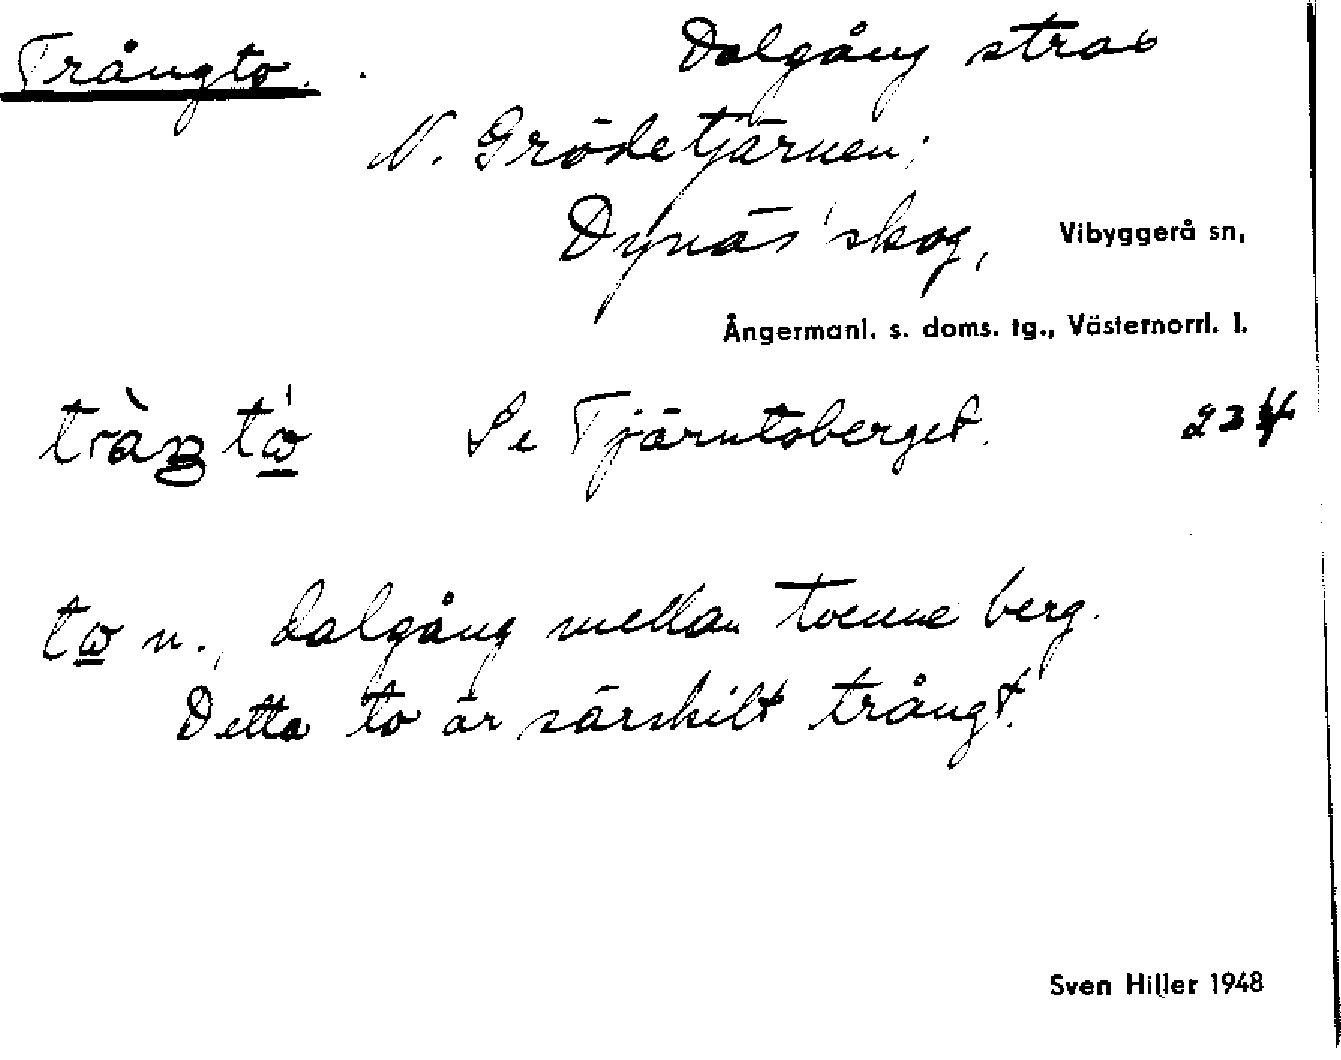 Trångto. Dalgång strax
N. Grödetjärnen;
Dynäs skog, Vibyggerå sn,
Ångermanl. s. doms. tg., Västernorrl. l.
Se Tjärntoberget. 234
n., dalgång mellan tvenne berg.
Detta to är särskilt trångt.
Sven Hiller 1948